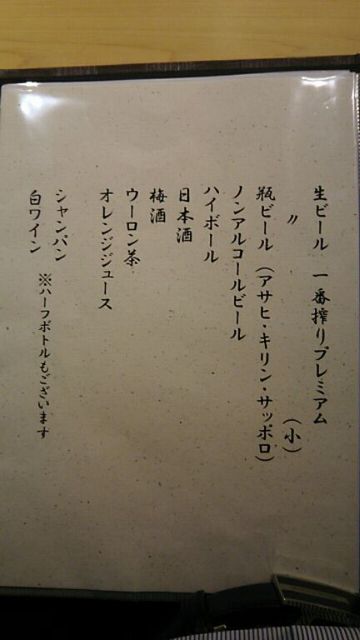 生ビール 一番搾りプレミアム
〃 (小)
瓶ビール (アサヒ・キリン・サッポロ)
ノンアルコールビール
ハイボール
日本酒
梅酒
ウーロン茶
オレンジジュース
シャンパン
白ワイン ※ハーフボトルもございます